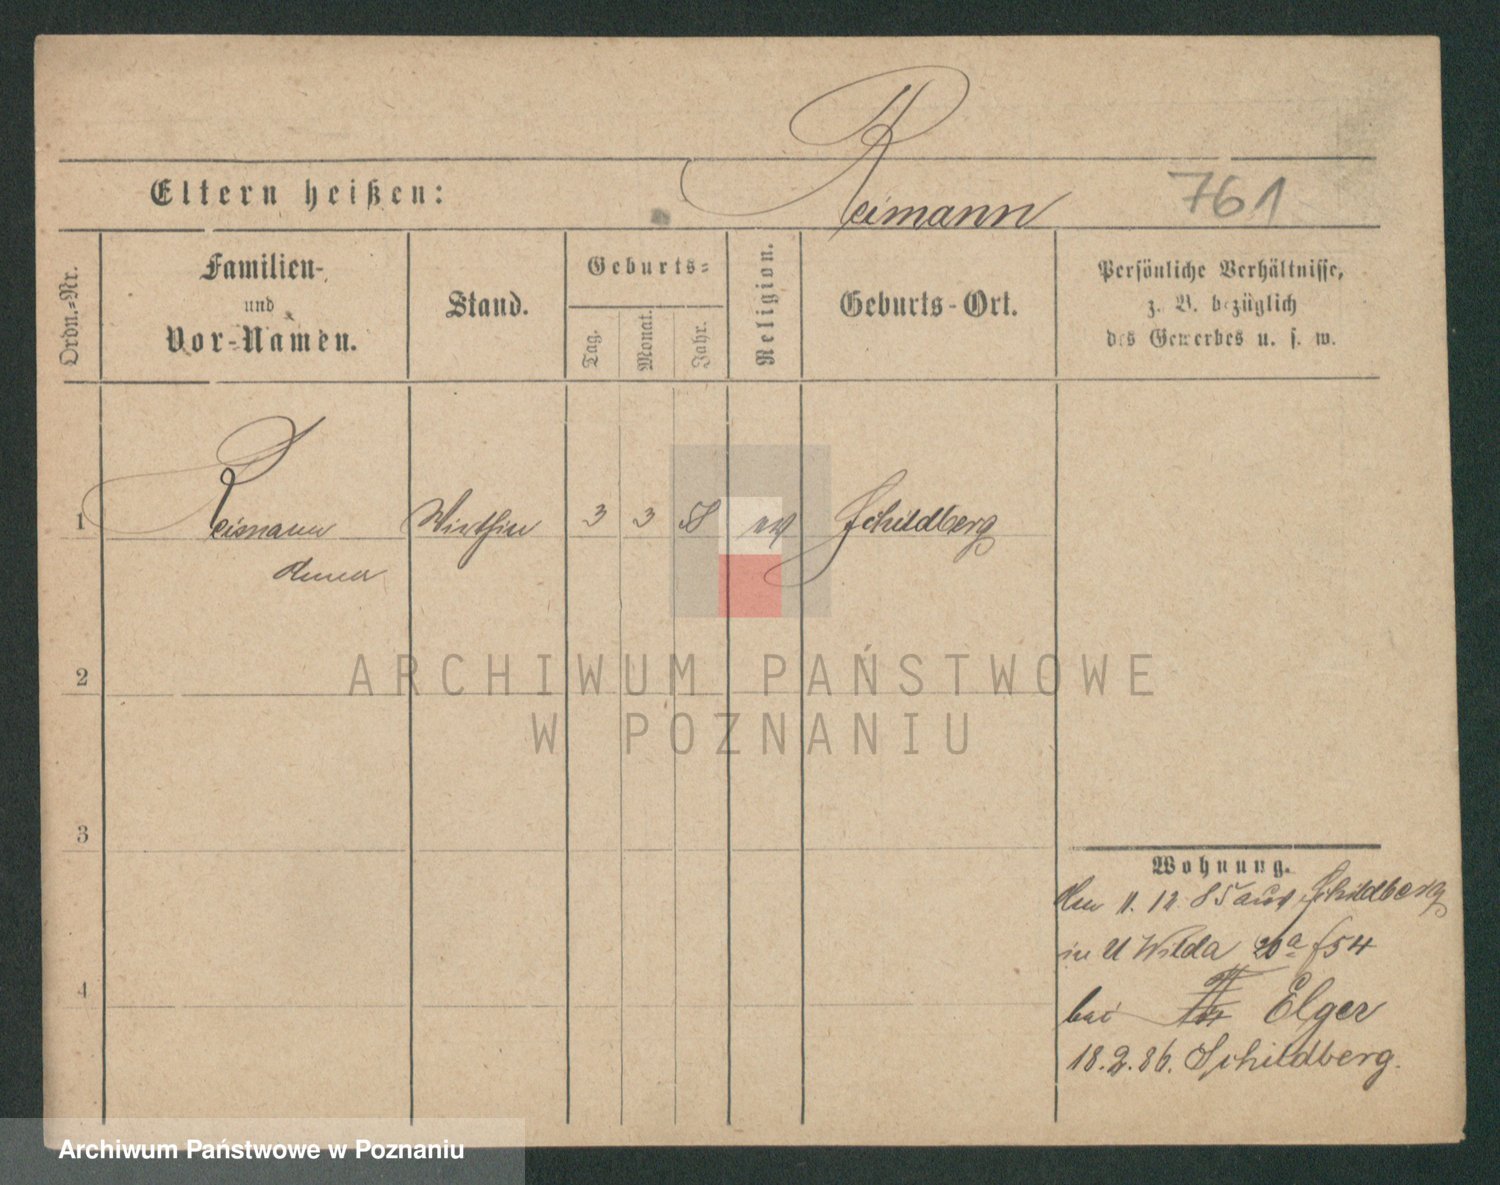 Reimann
761
Eltern heißen:
Ordn.-Nr.
Familien-
und
Vor-Namen.
Stand.
Geburts-
Tag.
Monat.
Jahr.
Religion.
Geburts-Ort.
Persönliche Verhältnisse,
z. B. bezüglich
des Gewerbes u. s. w.
1 Reimann Wirthin 3 3 58 ev Schildberg
Anna
2
3
4
Wohnung.
den 11. 12. 85 aus Schildberg
in U Wilda 20a f54
bei Elger
18.2.86. Schildberg.
ARCHIWUM PAŃSTWOWE
W POZNANIU
Archiwum Państwowe w Poznaniu